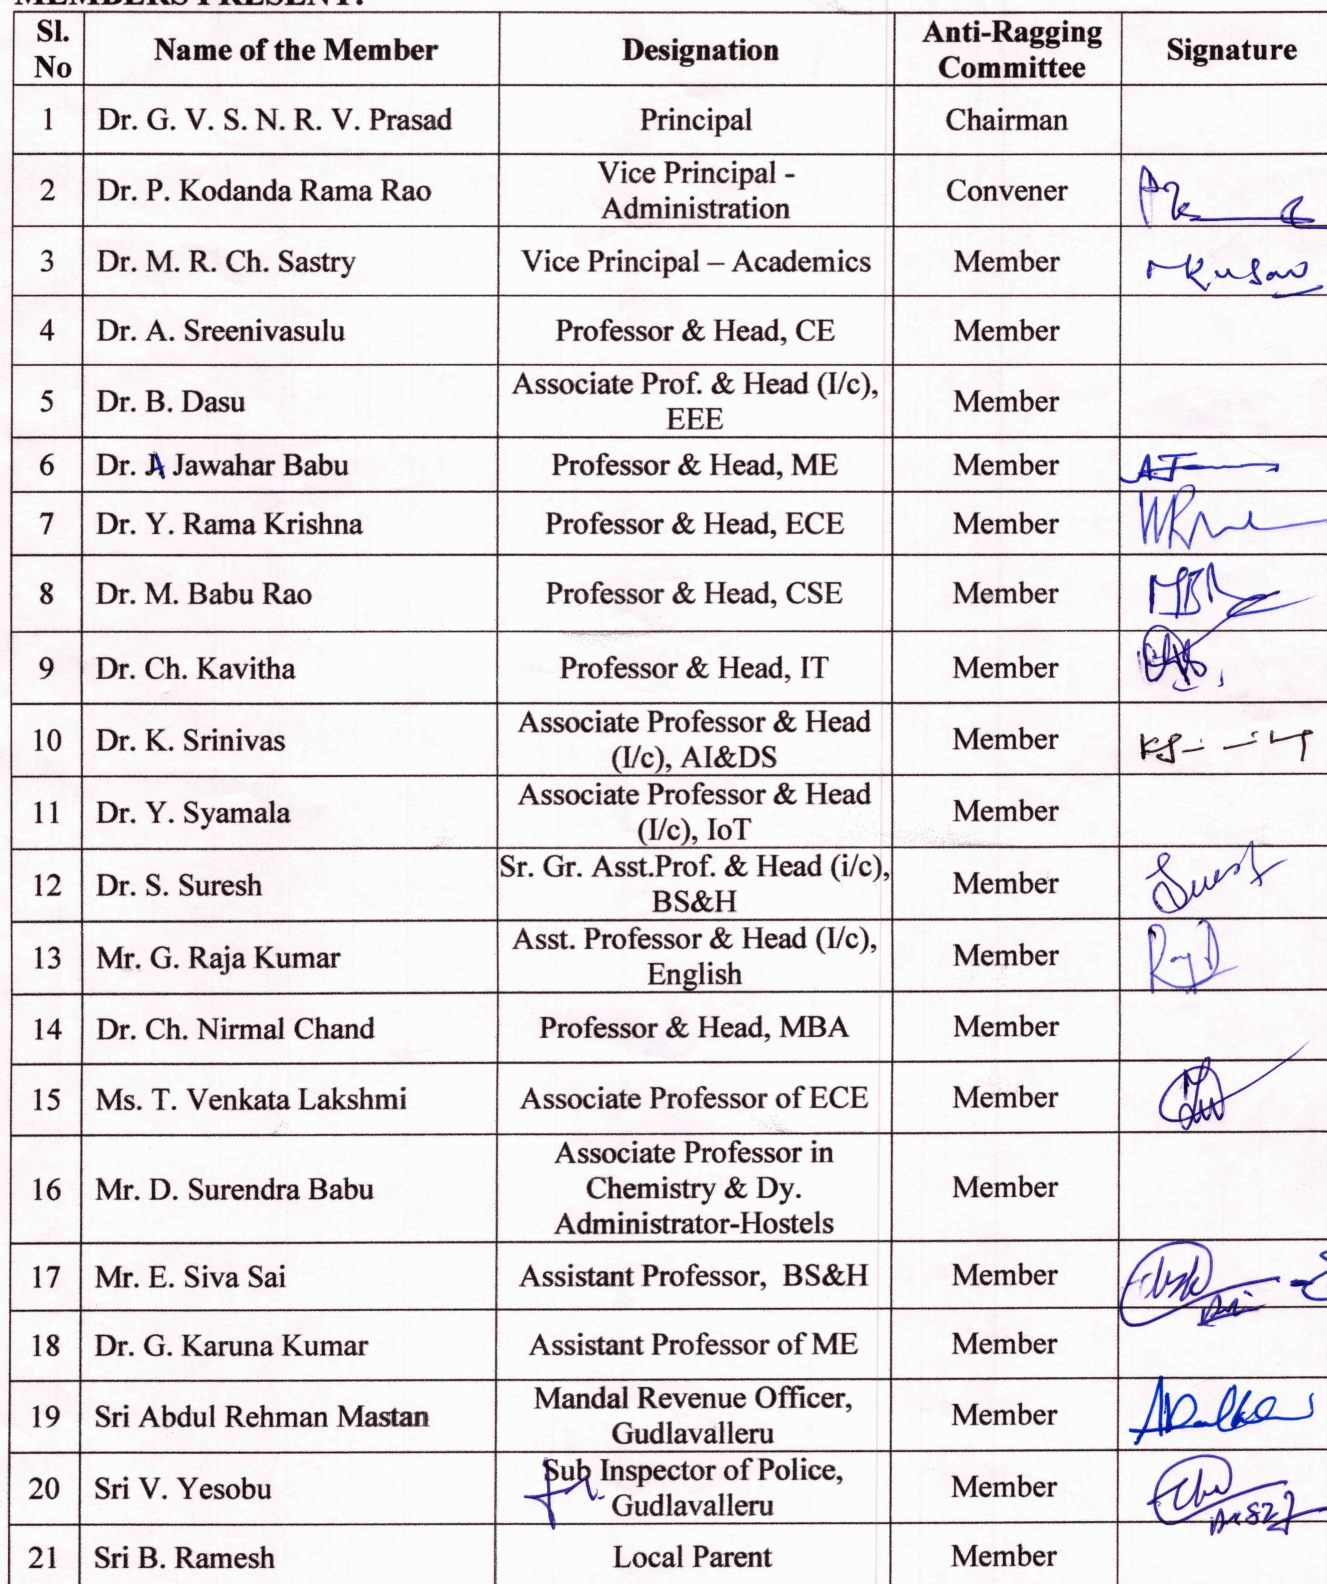 MEMBERS PRESENT:
Sl. No | Name of the Member | Designation | Anti-Ragging Committee | Signature
1 | Dr. G. V. S. N. R. V. Prasad | Principal | Chairman
2 | Dr. P. Kodanda Rama Rao | Vice Principal - Administration | Convener
3 | Dr. M. R. Ch. Sastry | Vice Principal – Academics | Member
4 | Dr. A. Sreenivasulu | Professor & Head, CE | Member
5 | Dr. B. Dasu | Associate Prof. & Head (I/c), EEE | Member
6 | Dr. A Jawahar Babu | Professor & Head, ME | Member
7 | Dr. Y. Rama Krishna | Professor & Head, ECE | Member
8 | Dr. M. Babu Rao | Professor & Head, CSE | Member
9 | Dr. Ch. Kavitha | Professor & Head, IT | Member
10 | Dr. K. Srinivas | Associate Professor & Head (I/c), AI&DS | Member
11 | Dr. Y. Syamala | Associate Professor & Head (I/c), IoT | Member
12 | Dr. S. Suresh | Sr. Gr. Asst.Prof. & Head (i/c), BS&H | Member
13 | Mr. G. Raja Kumar | Asst. Professor & Head (I/c), English | Member
14 | Dr. Ch. Nirmal Chand | Professor & Head, MBA | Member
15 | Ms. T. Venkata Lakshmi | Associate Professor of ECE | Member
16 | Mr. D. Surendra Babu | Associate Professor in Chemistry & Dy. Administrator-Hostels | Member
17 | Mr. E. Siva Sai | Assistant Professor, BS&H | Member
18 | Dr. G. Karuna Kumar | Assistant Professor of ME | Member
19 | Sri Abdul Rehman Mastan | Mandal Revenue Officer, Gudlavalleru | Member
20 | Sri V. Yesobu | Sub Inspector of Police, Gudlavalleru | Member
21 | Sri B. Ramesh | Local Parent | Member